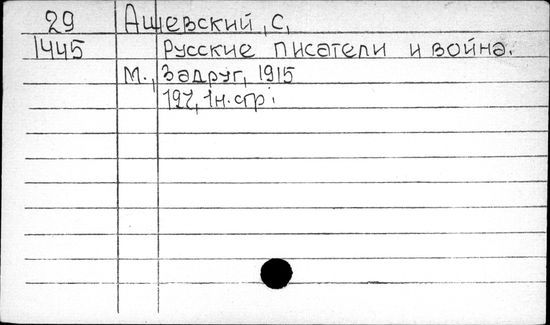 29 Ашевский, С,
1445 Русские писатели и война.
М., Задруг, 1915
197, 1н.стр;